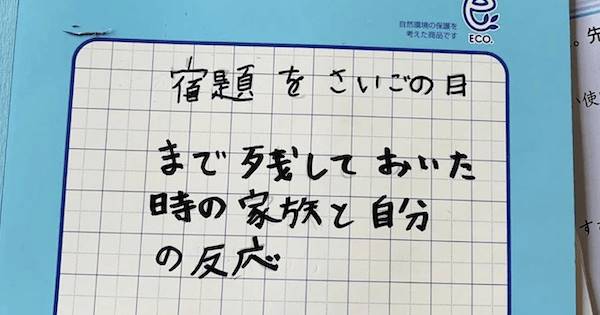 自然環境の保護を
考えた商品です
ECO.
宿題をさいごの日
まで残しておいた
時の家族と自分
の反応
先
使